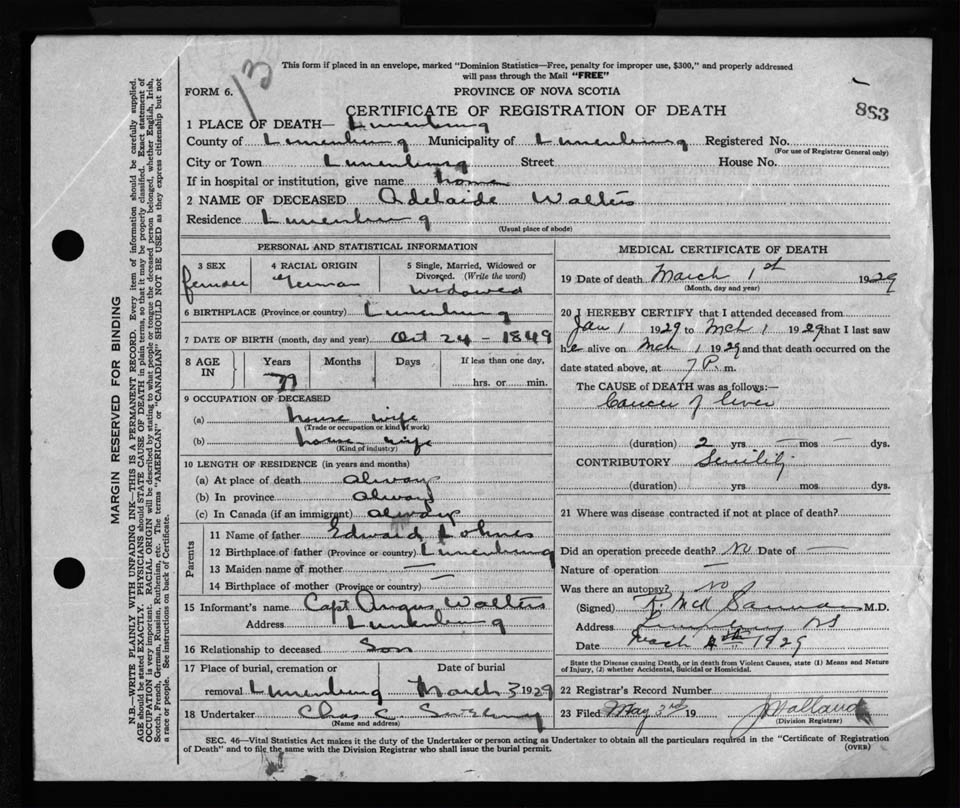 13
This form if placed in an envelope, marked "Dominion Statistics—Free, penalty for improper use, $300," and properly addressed
will pass through the Mail "FREE"
FORM 6.
PROVINCE OF NOVA SCOTIA
853
CERTIFICATE OF REGISTRATION OF DEATH
1 PLACE OF DEATH— Lunenburg
County of Lunenburg Municipality of Lunenburg Registered No.
(For use of Registrar General only)
City or Town Lunenburg Street House No.
If in hospital or institution, give name home
2 NAME OF DECEASED Adelaide Walters
Residence Lunenburg
(Usual place of abode)
PERSONAL AND STATISTICAL INFORMATION
3 SEX female
4 RACIAL ORIGIN German
5 Single, Married, Widowed or
Divorced. (Write the word)
widowed
6 BIRTHPLACE (Province or country) Lunenburg
7 DATE OF BIRTH (month, day and year) Oct 24 - 1849
8 AGE IN Years Months Days If less than one day,
79 hrs. or min.
9 OCCUPATION OF DECEASED
(a) house wife
(Trade or occupation or kind of work)
(b) house wife
(Kind of industry)
10 LENGTH OF RESIDENCE (in years and months)
(a) At place of death always
(b) In province always
(c) In Canada (if an immigrant) always
Parents
11 Name of father Edward Lohnes
12 Birthplace of father (Province or country) Lunenburg
13 Maiden name of mother —
14 Birthplace of mother (Province or country) —
15 Informant's name Capt Angus Walters
Address Lunenburg
16 Relationship to deceased Son
17 Place of burial, cremation or Date of burial
removal Lunenburg March 3 1929
18 Undertaker Chas C.
(Name and address)
MEDICAL CERTIFICATE OF DEATH
19 Date of death March 1st 1929
(Month, day and year)
20 I HEREBY CERTIFY that I attended deceased from
Jan 1 1929 to Mch 1 1929 that I last saw
he alive on Mch 1 1929 and that death occurred on the
date stated above, at 7 P. m.
The CAUSE of DEATH was as follows:—
Cancer of liver
(duration) 2 yrs — mos — dys.
CONTRIBUTORY Senility
(duration) yrs. mos. dys.
21 Where was disease contracted if not at place of death?
Did an operation precede death? No Date of —
Nature of operation —
Was there an autopsy? No
(Signed) M.D.
Address Lunenburg NS
Date March 4th 1929
State the Disease causing Death, or in death from Violent Causes, state (1) Means and Nature
of Injury, (2) whether Accidental, Suicidal or Homicidal.
22 Registrar's Record Number
23 Filed May 3rd 19
(Division Registrar)
SEC. 46—Vital Statistics Act makes it the duty of the Undertaker or person acting as Undertaker to obtain all the particulars required in the "Certificate of Registration
of Death" and to file the same with the Division Registrar who shall issue the burial permit.
(OVER)
MARGIN RESERVED FOR BINDING
N.B.—WRITE PLAINLY WITH UNFADING INK—THIS IS A PERMANENT RECORD. Every item of information should be carefully supplied.
AGE should be stated EXACTLY. PHYSICIANS should STATE CAUSE OF DEATH in plain terms, so that it may be properly classified. Exact statement of
OCCUPATION is very important. RACIAL ORIGIN will be described by stating to what people or tongue the deceased person belonged, whether English, Irish,
Scotch, French, German, Russian, Ruthenian, etc. The terms "AMERICAN" or "CANADIAN" SHOULD NOT BE USED as they express citizenship but not
a race or people. See instructions on back of Certificate.